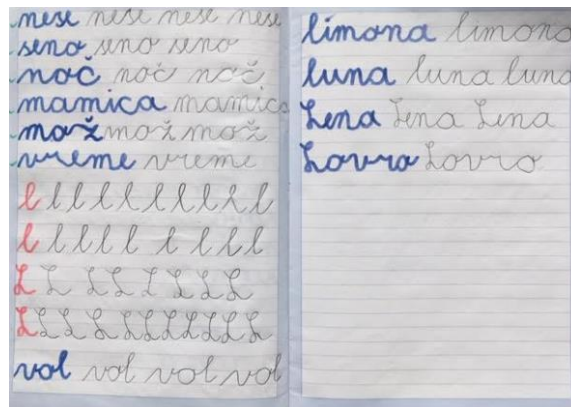 nese nese nese nese
seno seno seno
noč noč noč
mamica mamica
mož mož mož
vreme vreme
l l l l l l l l l l
l l l l l l l l l
L L L L L L L L
L L L L L L L L L L
vol vol vol vol
limona limona
luna luna luna
Lena Lena Lena
Lovro Lovro